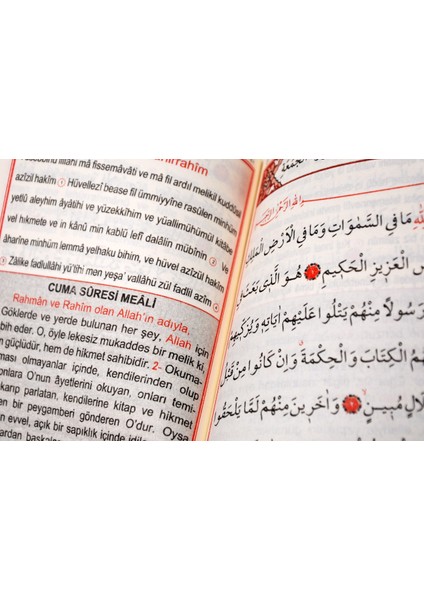 yüsebbihu lillâhi mâ fissemâvâti ve mâ fil ardıl melikil kuddûsil
azîzil hakîm
Hüvellezî bease fil ümmiyyîne rasûlen minhüm
yetlû aleyhim âyâtihî ve yüzekkîhim ve yüallimühümül kitâbe
vel hikmete ve in kânû min kablü lefî dalâlin mübînin
Ve
âharîne minhüm lemmâ yelhaku bihim, ve hüvel azîzül hakîm
Zâlike fadlullahi yü'tîhi men yeşa' vallâhü zül fadlil azîm
CUMA SÛRESİ MEÂLİ
Rahmân ve Rahîm olan Allah'ın adıyla.
Göklerde ve yerde bulunan her şey, Allah için
bih eder. O, öyle lekesiz mukaddes bir melik ki,
güçlüdür, hem de hikmet sahibidir. 2- Okuma-
ması olmayanlar içinde, kendilerinden olup
onlara O'nun âyetlerini okuyan, onları temi-
karıp parlatan, kendilerine kitap ve hikmet
bir peygamberi gönderen O'dur. Oysa
evvel, açık bir sapıklık içinde idiler
الجمعة
مَا فِي السَّمٰوَاتِ وَمَا فِي الْاَرْضِ الْمَلِكِ
الْعَزِيزِ الْحَكِيمِ ١ هُوَ الَّذِي بَعَثَ فِي
رَسُولًا مِنْهُمْ يَتْلُوا عَلَيْهِمْ اٰيَاتِهِ وَيُزَكِّيهِمْ
الْكِتَابَ وَالْحِكْمَةَ وَاِنْ كَانُوا مِنْ قَبْلُ
مُبِينٍ ٢ وَاٰخَرِينَ مِنْهُمْ لَمَّا يَلْحَقُوا